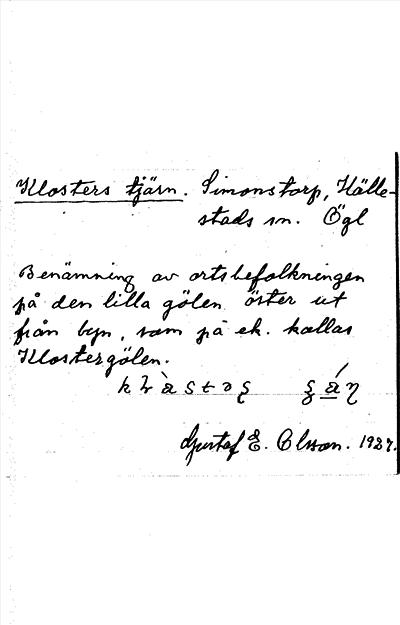 Klosters tjärn. Simonstorp, Hälle-
stads sn. Ögl
Benämning av ortsbefolkningen
på den lilla gölen öster ut
från byn, som på ek. kallas
Klostergölen.
Gustaf E. Olsson. 1937.